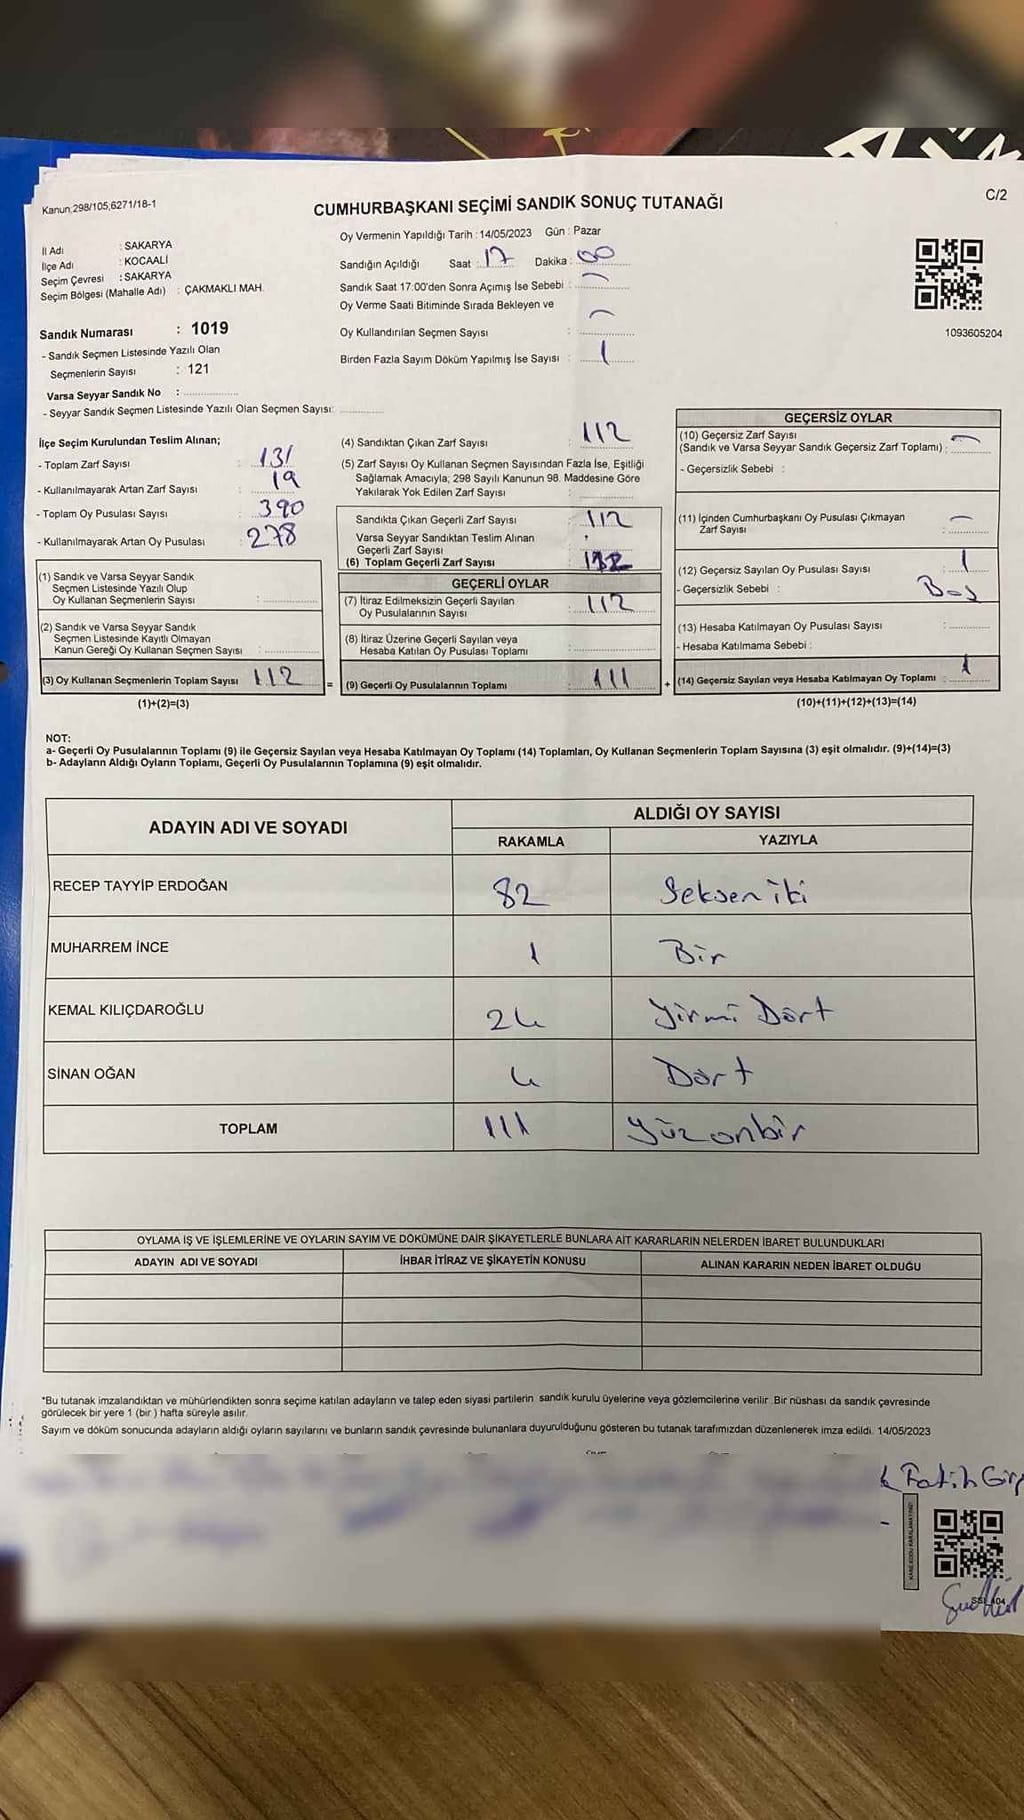 Kanun;298/105;6271/18-1
CUMHURBAŞKANI SEÇİMİ SANDIK SONUÇ TUTANAĞI
C/2
İl Adı : SAKARYA
İlçe Adı : KOCAALİ
Seçim Çevresi : SAKARYA
Seçim Bölgesi (Mahalle Adı) : ÇAKMAKLI MAH.
Sandık Numarası : 1019
- Sandık Seçmen Listesinde Yazılı Olan
Seçmenlerin Sayısı : 121
Varsa Seyyar Sandık No :
- Seyyar Sandık Seçmen Listesinde Yazılı Olan Seçmen Sayısı:
Oy Vermenin Yapıldığı Tarih : 14/05/2023 Gün : Pazar
Sandığın Açıldığı Saat : 17 Dakika : 00
Sandık Saat 17:00'den Sonra Açımış İse Sebebi : -
Oy Verme Saati Bitiminde Sırada Bekleyen ve
Oy Kullandırılan Seçmen Sayısı : -
Birden Fazla Sayım Döküm Yapılmış İse Sayısı : 1
1093605204
İlçe Seçim Kurulundan Teslim Alınan;
- Toplam Zarf Sayısı : 131
- Kullanılmayarak Artan Zarf Sayısı : 19
- Toplam Oy Pusulası Sayısı : 390
- Kullanılmayarak Artan Oy Pusulası : 278
(1) Sandık ve Varsa Seyyar Sandık
Seçmen Listesinde Yazılı Olup
Oy Kullanan Seçmenlerin Sayısı :
(2) Sandık ve Varsa Seyyar Sandık
Seçmen Listesinde Kayıtlı Olmayan
Kanun Gereği Oy Kullanan Seçmen Sayısı :
(3) Oy Kullanan Seçmenlerin Toplam Sayısı 112 =
(1)+(2)=(3)
(4) Sandıktan Çıkan Zarf Sayısı : 112
(5) Zarf Sayısı Oy Kullanan Seçmen Sayısından Fazla İse, Eşitliği
Sağlamak Amacıyla; 298 Sayılı Kanunun 98. Maddesine Göre
Yakılarak Yok Edilen Zarf Sayısı :
Sandıkta Çıkan Geçerli Zarf Sayısı : 112
Varsa Seyyar Sandıktan Teslim Alınan
Geçerli Zarf Sayısı :
(6) Toplam Geçerli Zarf Sayısı : 112
GEÇERLİ OYLAR
(7) İtiraz Edilmeksizin Geçerli Sayılan
Oy Pusulalarının Sayısı : 112
(8) İtiraz Üzerine Geçerli Sayılan veya
Hesaba Katılan Oy Pusulası Toplamı :
(9) Geçerli Oy Pusulalarının Toplamı : 111 +
GEÇERSİZ OYLAR
(10) Geçersiz Zarf Sayısı
(Sandık ve Varsa Seyyar Sandık Geçersiz Zarf Toplamı) : -
- Geçersizlik Sebebi :
(11) İçinden Cumhurbaşkanı Oy Pusulası Çıkmayan
Zarf Sayısı : -
(12) Geçersiz Sayılan Oy Pusulası Sayısı : 1
- Geçersizlik Sebebi : Boş
(13) Hesaba Katılmayan Oy Pusulası Sayısı :
- Hesaba Katılmama Sebebi :
(14) Geçersiz Sayılan veya Hesaba Katılmayan Oy Toplamı : 1
(10)+(11)+(12)+(13)=(14)
NOT:
a- Geçerli Oy Pusulalarının Toplamı (9) ile Geçersiz Sayılan veya Hesaba Katılmayan Oy Toplamı (14) Toplamları, Oy Kullanan Seçmenlerin Toplam Sayısına (3) eşit olmalıdır. (9)+(14)=(3)
b- Adayların Aldığı Oyların Toplamı, Geçerli Oy Pusulalarının Toplamına (9) eşit olmalıdır.
ADAYIN ADI VE SOYADI
ALDIĞI OY SAYISI
RAKAMLA YAZIYLA
RECEP TAYYİP ERDOĞAN 82 Seksen iki
MUHARREM İNCE 1 Bir
KEMAL KILIÇDAROĞLU 24 Yirmi Dört
SİNAN OĞAN 4 Dört
TOPLAM 111 Yüzonbir
OYLAMA İŞ VE İŞLEMLERİNE VE OYLARIN SAYIM VE DÖKÜMÜNE DAİR ŞİKAYETLERLE BUNLARA AİT KARARLARIN NELERDEN İBARET BULUNDUKLARI
ADAYIN ADI VE SOYADI İHBAR İTİRAZ VE ŞİKAYETİN KONUSU ALINAN KARARIN NEDEN İBARET OLDUĞU
*Bu tutanak imzalandıktan ve mühürlendikten sonra seçime katılan adayların ve talep eden siyasi partilerin sandık kurulu üyelerine veya gözlemcilerine verilir. Bir nüshası da sandık çevresinde
görülecek bir yere 1 (bir ) hafta süreyle asılır.
Sayım ve döküm sonucunda adayların aldığı oyların sayılarını ve bunların sandık çevresinde bulunanlara duyurulduğunu gösteren bu tutanak tarafımızdan düzenlenerek imza edildi. 14/05/2023
Fatih